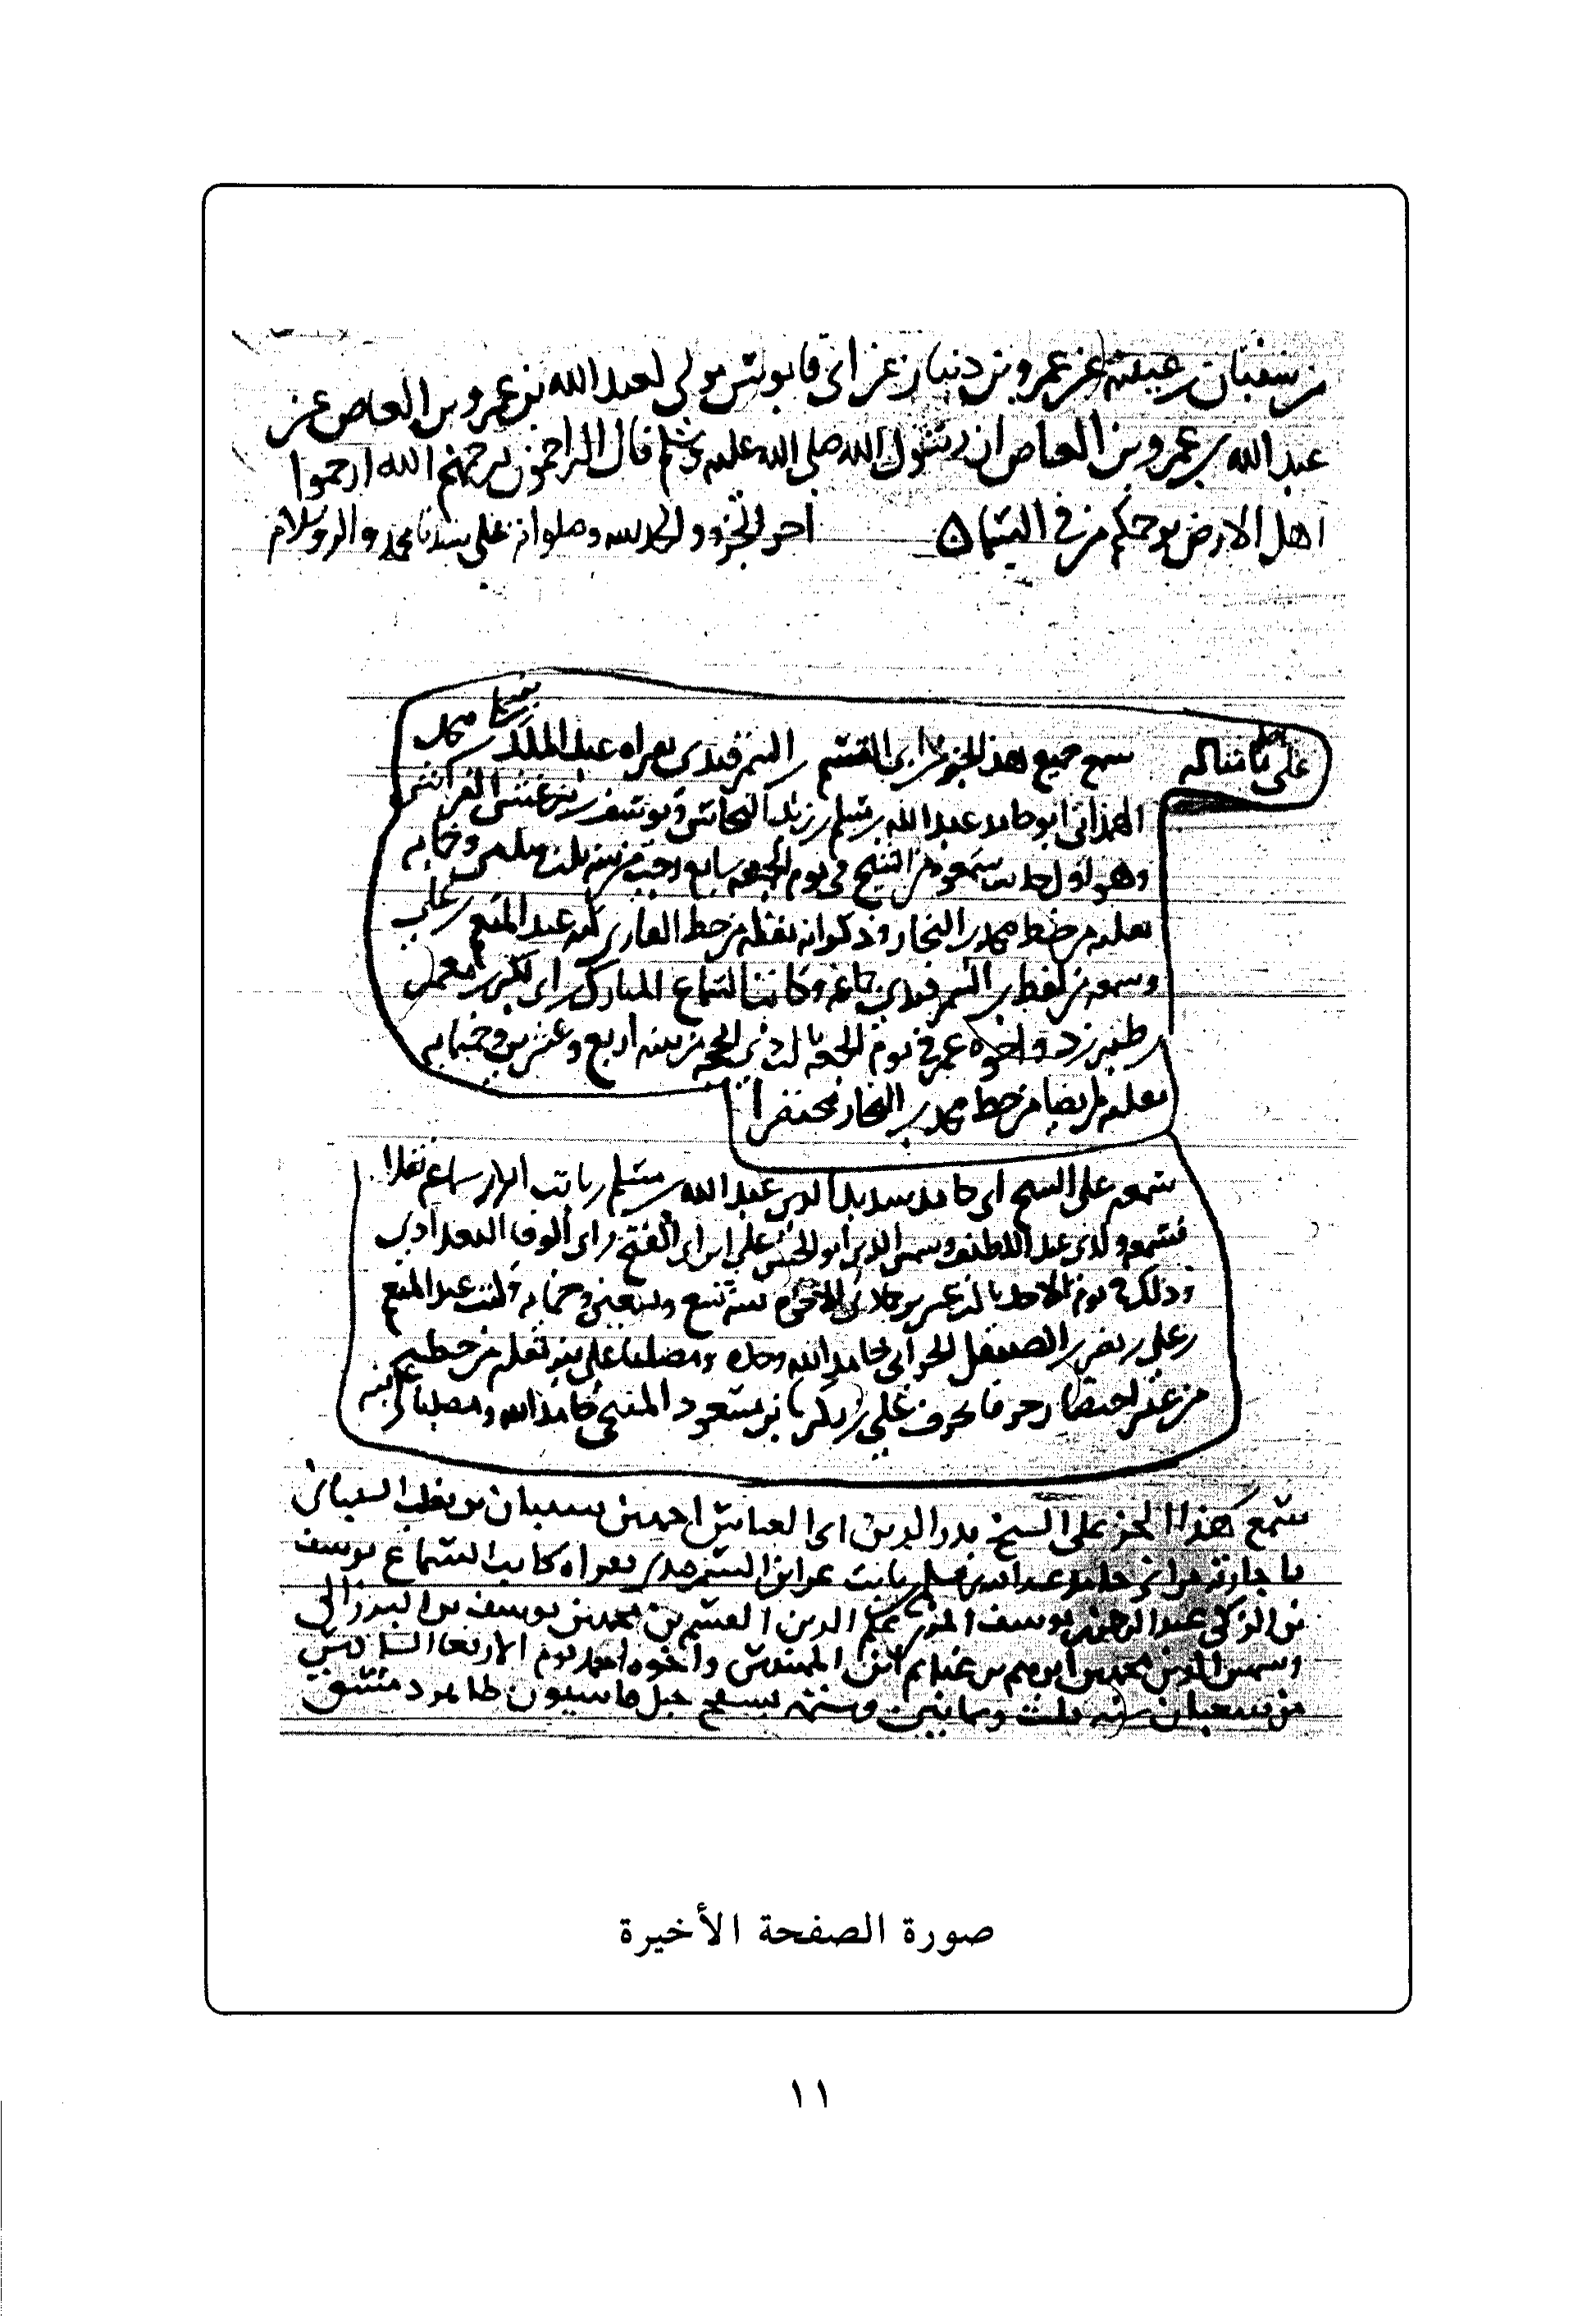 من سفيان بن عيينة عن عمرو بن دينار عن ابى قابوس مولى لعبد الله بن عمرو بن العاص عن
عبد الله بن عمرو بن العاص ان رسول الله صلى الله عليه وسلم قال الراحمون يرحمهم الله ارحموا
اهل الارض يرحمكم من في السماء اخر الجزو والحمد لله وصلواته على سيدنا محمد واله وسلام
سمع جميع هذا الجزو على ابى القسم بن السمرقندى بقراه عبد الملك بن
على ما مثاله
الهمذانى ابو حامد عبد الله بن مسلم بن النحاس ويوسف بن
وهو اول سمعه من الشيخ في يوم الجمعه سابع رجب من سنه ثلث وخمسمايه
نقله من خط محمد بن النجار وذكر انه نقله من خط القارى كتبه عبد المنعم بن على
وسمعه من لفظ بن السمرقندى جماعه وكاتب السماع المبارك بن ابى بكر بن معمر
بن طبرزد واخوه عمر في يوم الجمعه ثالث ذى الحجه من سنه اربع وعشرين وخمسمايه
نقله ايضا من خط محمد بن النجار مختصرا
سمعه على الشيخ ابى حامد عبد الله بن مسلم بن ثابت البزاز بسماعه نقلا
فسمعه ولدى عبد اللطيف وشمس الدين ابو الحسن على ابن ابى الفتح بن ابى الوفا البغدادى
وذلك في يوم الاحد ثالث عشرين جمادى الاخره سنه تسع وتسعين وخمسمايه وكتب عبد المنعم
بن على بن نصر بن الصيقل الحرانى حامدا لله وحده ومصليا على نبيه نقله من خطه
من غير اختصار حرفا بحرف على بن بكر بن مسعود المنبجى حامدا لله ومصليا على نبيه
سمع هذا الجز على الشيخ بدر الدين ابى العباس احمد بن شيبان بن تغلب الشيبانى
باجازته من ابى حامد عبد الله بن مسلم بن ثابت عن ابن السمرقندى بقراه كاتب السماع يوسف
بن الزكى عبد الرحمن بن يوسف المزى علم الدين القسم بن محمد بن يوسف بن البرزالى
وشمس الدين محمد بن ابراهيم بن غنايم ابن المهندس واخوه احمد يوم الاربعا السادس
من شعبان سنه ثلث وثمانين وستمايه بسفح جبل قاسيون ظاهر دمشق
صورة الصفحة الأخيرة
١١